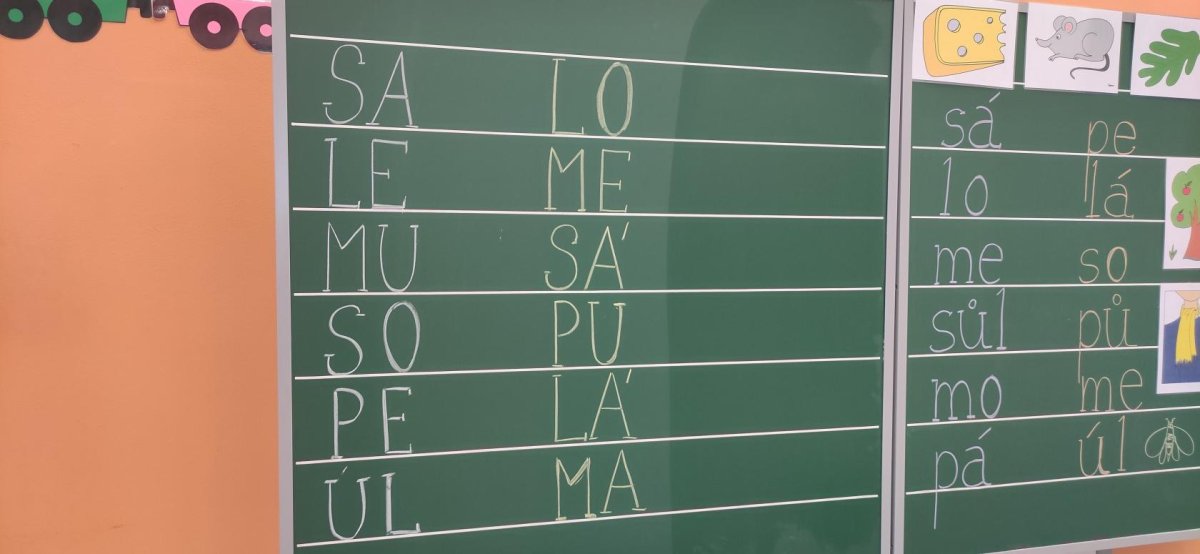 SA LO
LE ME
MU SÁ
SO PU
PE LÁ
ÚL MA
sá pe
lo lá
me so
sůl pů
mo me
pá úl